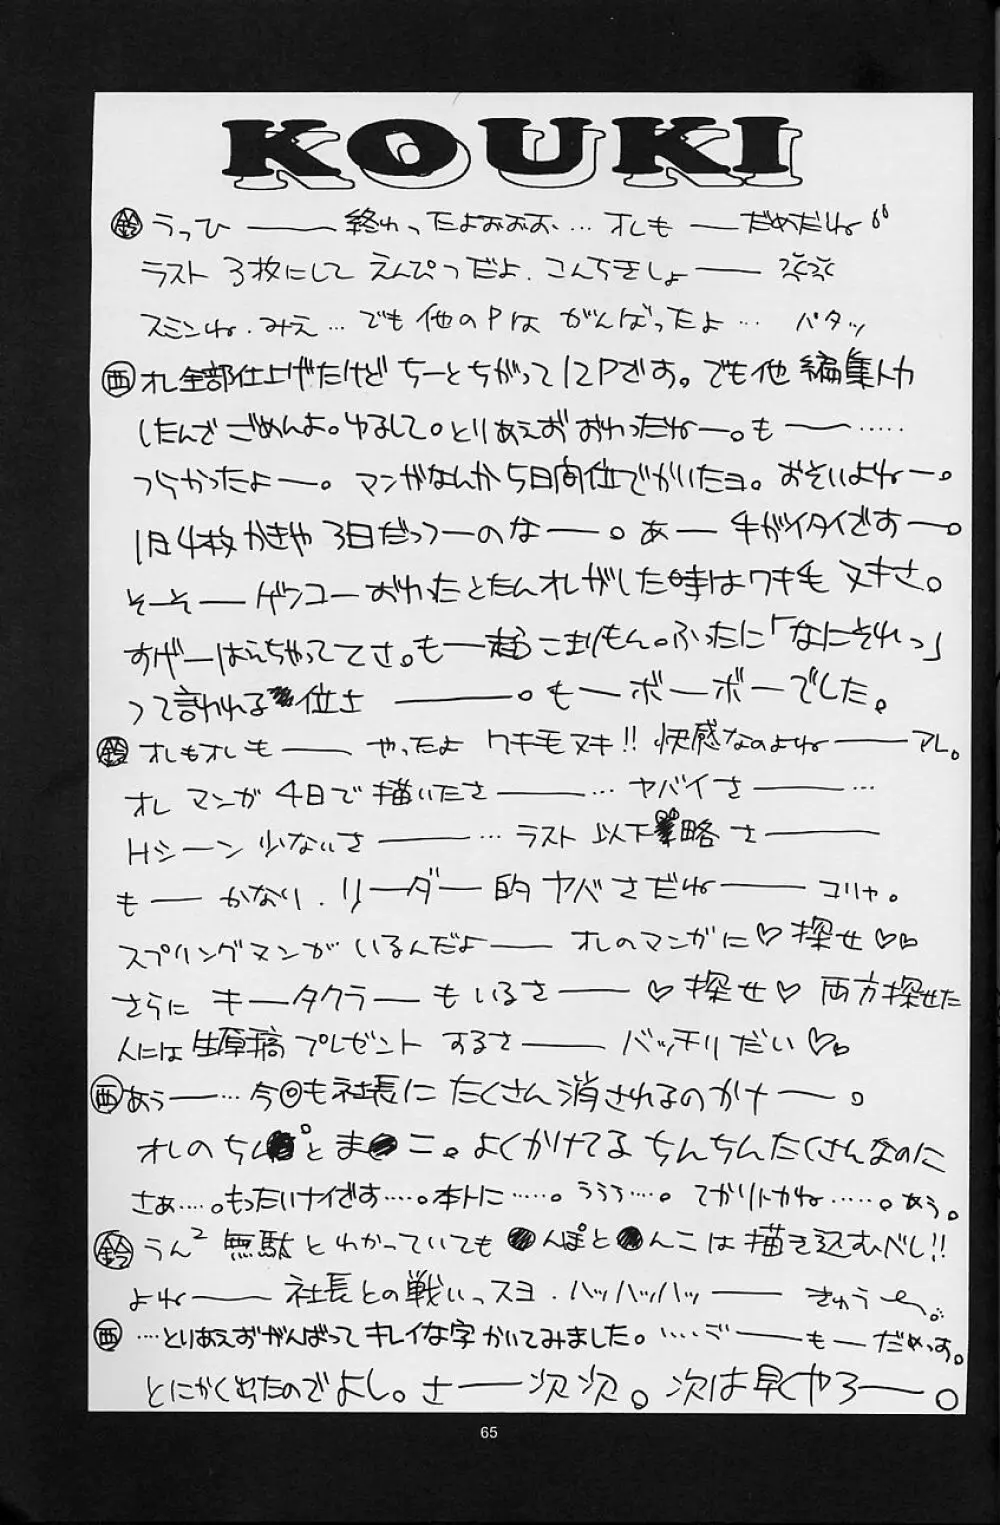 KOUKI
鈴 うっひ――― 終わったよおおお、… オレも ―だめだね
ラスト 3枚にして えんぴつだよ. こんちきしょ―― 泣泣
スミンね. みえ… でも 他のPは がんばったよ… パタッ
西 オレ全部仕上げたけど ちーとちがって12Pです。でも他 編集トカ
したんで ごめんよ。ゆるして。とりあえず おわったねー。も――.....
つらかったよ―。 マンガなんか 5日間位でかいたヨ。おそいよねー。
1日4枚 かきゃ 3日だっつーのな―。あ― 手がイタイですー。
そーそー―ゲンコーおわったとたんオレがした事はワキ毛 ヌキさ。
すげーはえちゃっててさ。も―超こまりもん。ふったに「なにそれっ」
って言われる位さ ―――。も―ボーボーでした。
鈴 オレもオレも―― やったよ ワキ毛ヌキ!! 快感なのよね――アレ。
オレ マンガ 4日で 描いたさ――― … ヤバイさ――― …
Hシーン 少ないさ――― … ラスト 以下略さ―――
も― かなり. リーダー的ヤバさだね―― コリャ。
スプリングマンが いるんだよ―― オレのマンガに♡ 探せ♡♡
さらに キータクラーも いるさ―― ♡探せ♡ 両方探せた
人には 生原稿 プレゼント するさ―― バッチリだい♡♡
西 あぅ―… 今回も社長に たくさん消されるのかナー。
オレのち●●とま●こ。よくかけてる ちんちんたくさんなのに
さぁ.....。もったいナイです....。本トに.....。ううう....。てかりトカね.....。あぅ。
鈴 うん² 無駄と わかっていても ●んぽと●んこは 描き込むべし!!
よね―― 社長との戦いっスヨ. ハッハッハッ―― きゅう~。
西 ....とりあえずがんばって キレイな字 かいてみました。.....ご―― も―だめっす。
とにかく出たのでよし。さ――次次。次は早くやろ―。
65